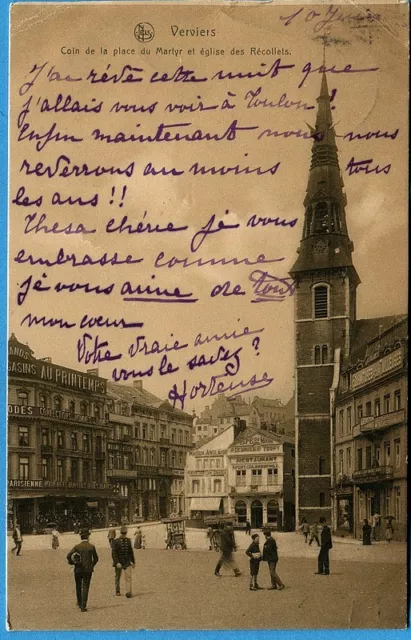 10 Juin
Verviers
Coin de la place du Martyr et église des Récollets.
J'ai rêvé cette nuit que
j'allais vous voir à Toulon!
Enfin maintenant nous nous
reverrons au moins tous
les ans!!
Thesa chérie je vous
embrasse comme
je vous aime de tout
mon cœur
Votre vraie amie
vous le savez?
Hortense
GRANDS
MAGASINS AU PRINTEMPS
MODES
PARISIENNE
RESTAURANT